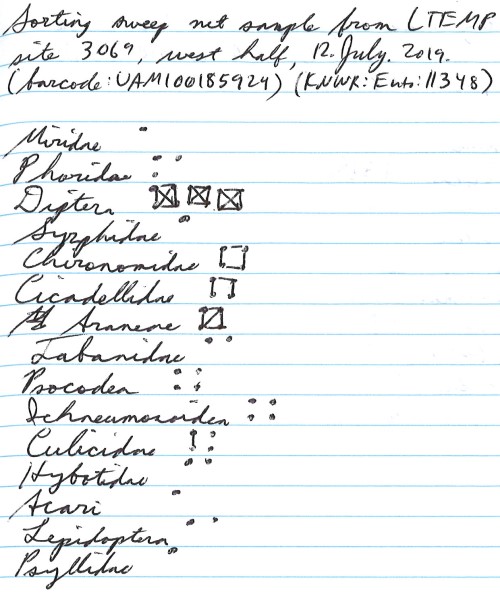 Sorting sweep net sample from LTEMP
site 3069, west half, 12. July. 2019.
(barcode: UAM100185924) (KNWR:Ento:11348)
Miridae
Phoridae
Diptera
Syrphidae
Chironomidae
Cicadellidae
Araneae
Tabanidae
Psocodea
Ichneumonoidea
Culicidae
Hybotidae
Acari
Lepidoptera
Psyllidae